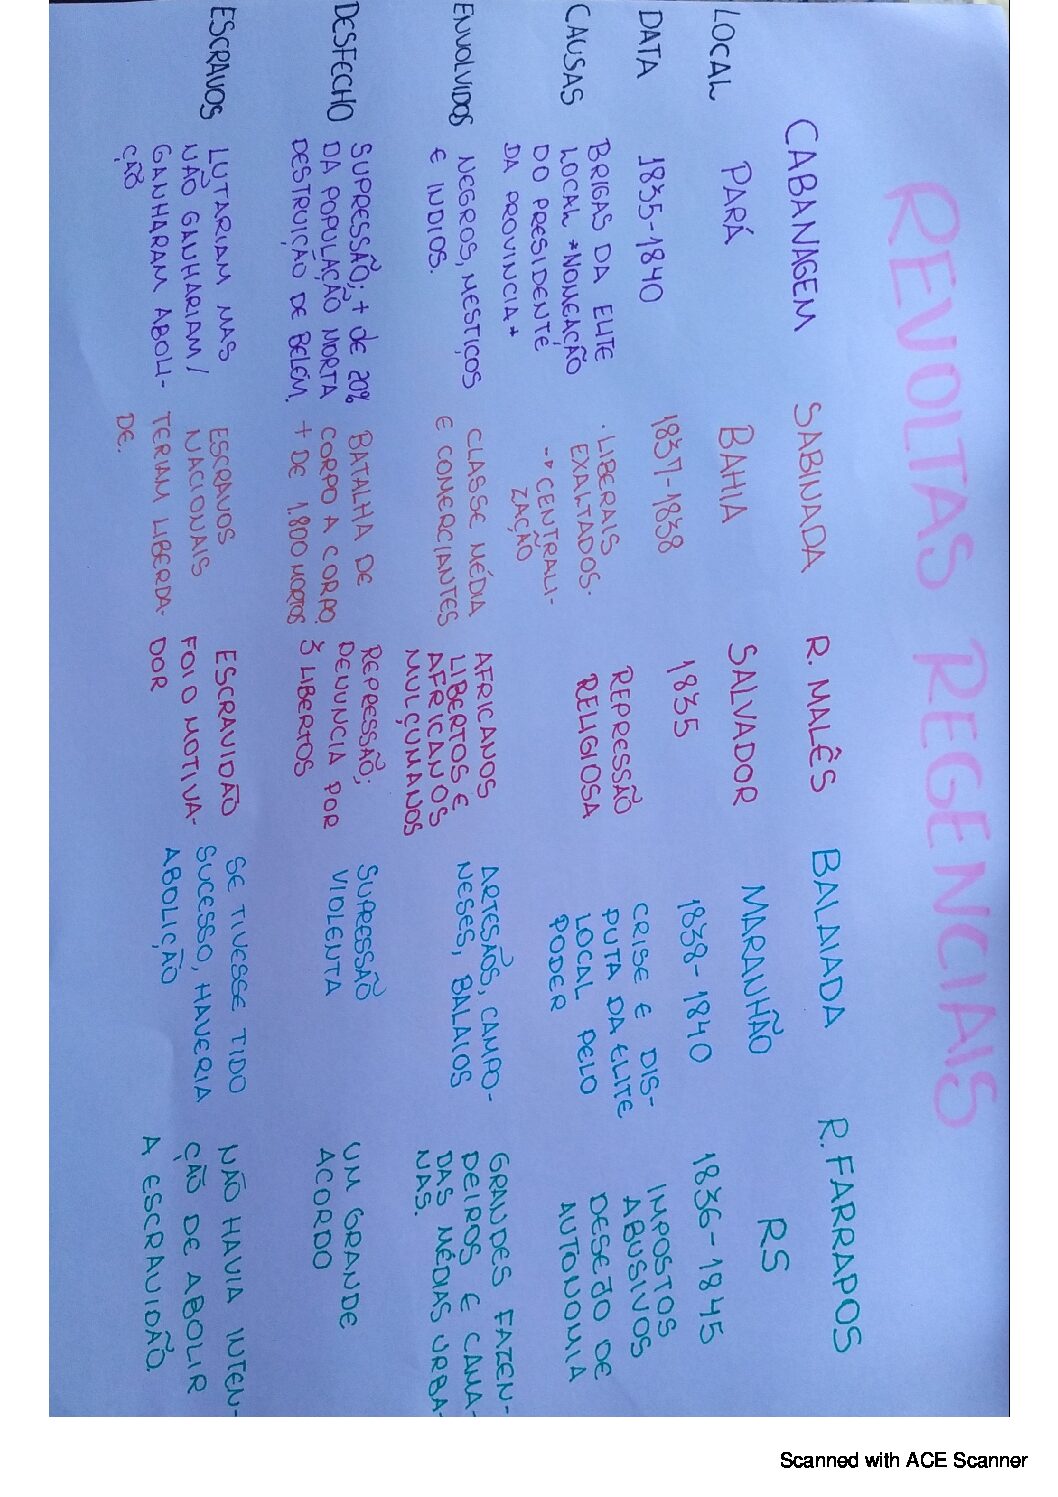 REVOLTAS REGENCIAIS
CABANAGEM SABINADA R. MALÊS BALAIADA R. FARRAPOS
LOCAL PARÁ BAHIA SALVADOR MARANHÃO RS
DATA 1835-1840 1837-1838 1835 1838-1840 1836-1845
CAUSAS
BRIGAS DA ELITE
LOCAL *NOMEAÇÃO
DO PRESIDENTE
DA PROVINCIA*
· LIBERAIS
EXALTADOS.
-> CENTRALI-
ZAÇÃO
REPRESSÃO
RELIGIOSA
CRISE E DIS-
PUTA DA ELITE
LOCAL PELO
PODER
IMPOSTOS
ABUSIVOS
DESEJO DE
AUTONOMIA
ENVOLVIDOS
NEGROS, MESTIÇOS
E INDIOS.
CLASSE MÉDIA
E COMERCIANTES
AFRICANOS
LIBERTOS E
AFRICANOS
MULÇUMANOS
ARTESÃOS, CAMPO-
NESES, BALAIOS
GRANDES FAZEN-
DEIROS E CAMA-
DAS MÉDIAS URBA-
NAS.
DESFECHO
SUPRESSÃO; + de 20%
DA POPULAÇÃO MORTA
DESTRUIÇÃO DE BELÉM.
BATALHA DE
CORPO A CORPO.
+ DE 1.800 MORTOS
REPRESSÃO;
DENUNCIA POR
3 LIBERTOS
SUPRESSÃO
VIOLENTA
UM GRANDE
ACORDO
ESCRAVOS
LUTARIAM MAS
NÃO GANHARIAM /
GANHARAM ABOLI-
ÇÃO
ESCRAVOS
NACIONAIS
TERIAM LIBERDA-
DE.
ESCRAVIDÃO
FOI O MOTIVA-
DOR
SE TIVESSE TIDO
SUCESSO, HAVERIA
ABOLIÇÃO
NÃO HAVIA INTEN-
ÇÃO DE ABOLIR
A ESCRAVIDÃO.
Scanned with ACE Scanner